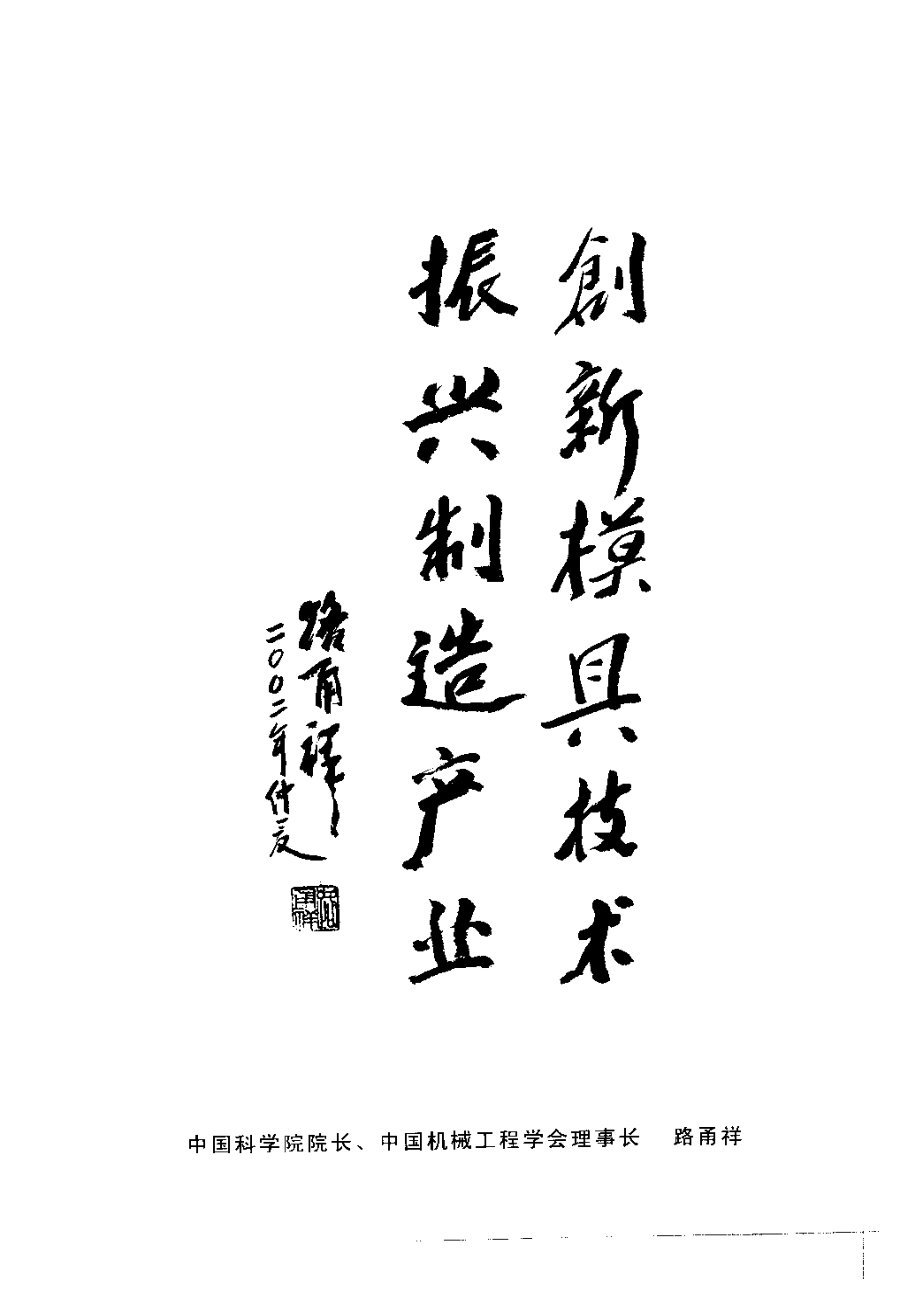 創新模具技术
振兴制造产业
路甬祥
二〇〇二年仲夏
中国科学院院长、中国机械工程学会理事长 路甬祥